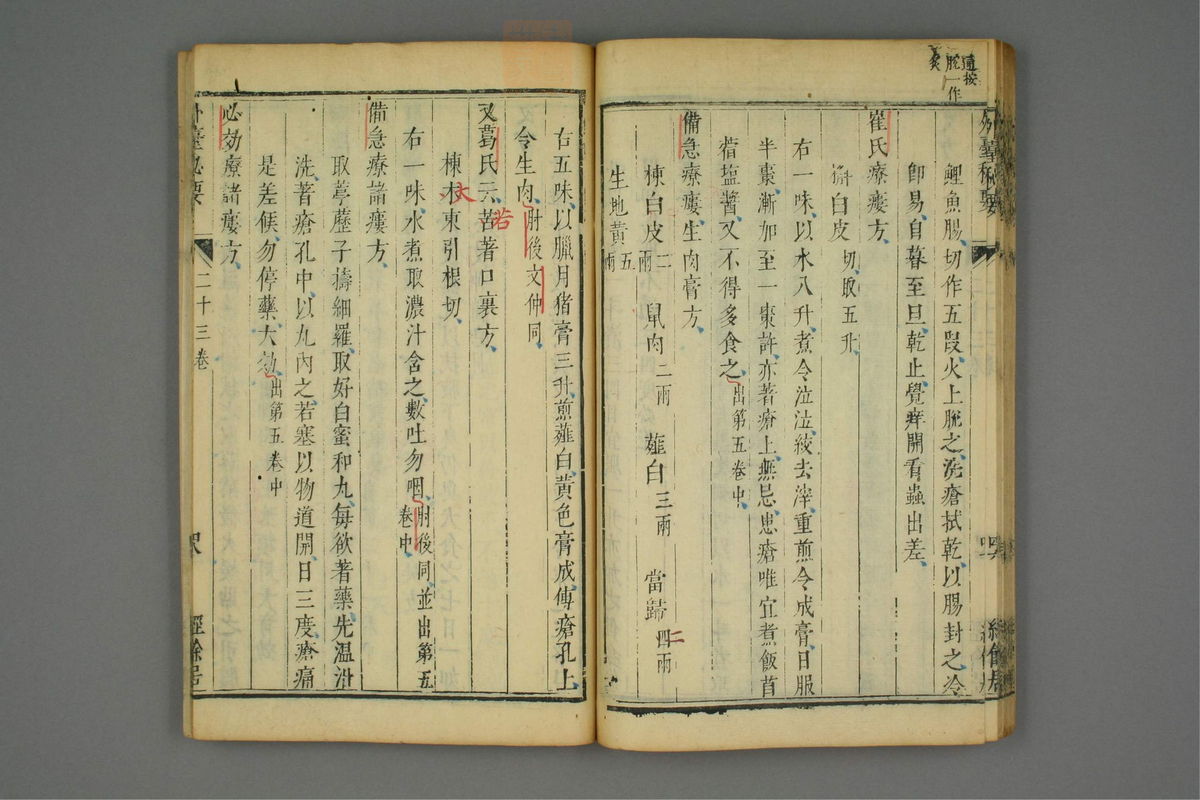 鯉魚腸切作五段火上脫之洗瘡拭乾以腸封之冷
卽易自暮至旦乾止覺痒開看蟲出差
崔氏療瘻方
槲白皮切取五升
右一味以水八升煮令泣泣絞去滓重煎令成膏日服
半棗漸加至一棗許亦著瘡上無忌患瘡唯宜煮飯苜
蓿塩醬又不得多食之出第五卷中
備急療瘻生肉膏方
楝白皮二兩 鼠肉二兩 薤白三兩 當歸四兩 二
生地黃五兩
右五味以臘月猪膏三升煎薤白黃色膏成傅瘡孔上
令生肉肘後文仲同
又葛氏云苦著口裏方
若
楝木東引根切
大
右一味水煮取濃汁含之數吐勿咽肘後同並出第五
卷中
備急療諸瘻方
取葶藶子擣細羅取好白蜜和丸每欲著藥先溫泔
洗著瘡孔中以丸內之若塞以物道開日三度瘡痛
是差候勿停藥大効出第五卷中
必効療諸瘻方
外臺秘要
二十三卷
經餘居